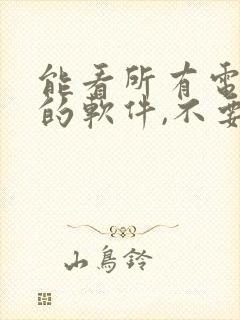 能看所有電
的軟件,不要
山鳥鈴